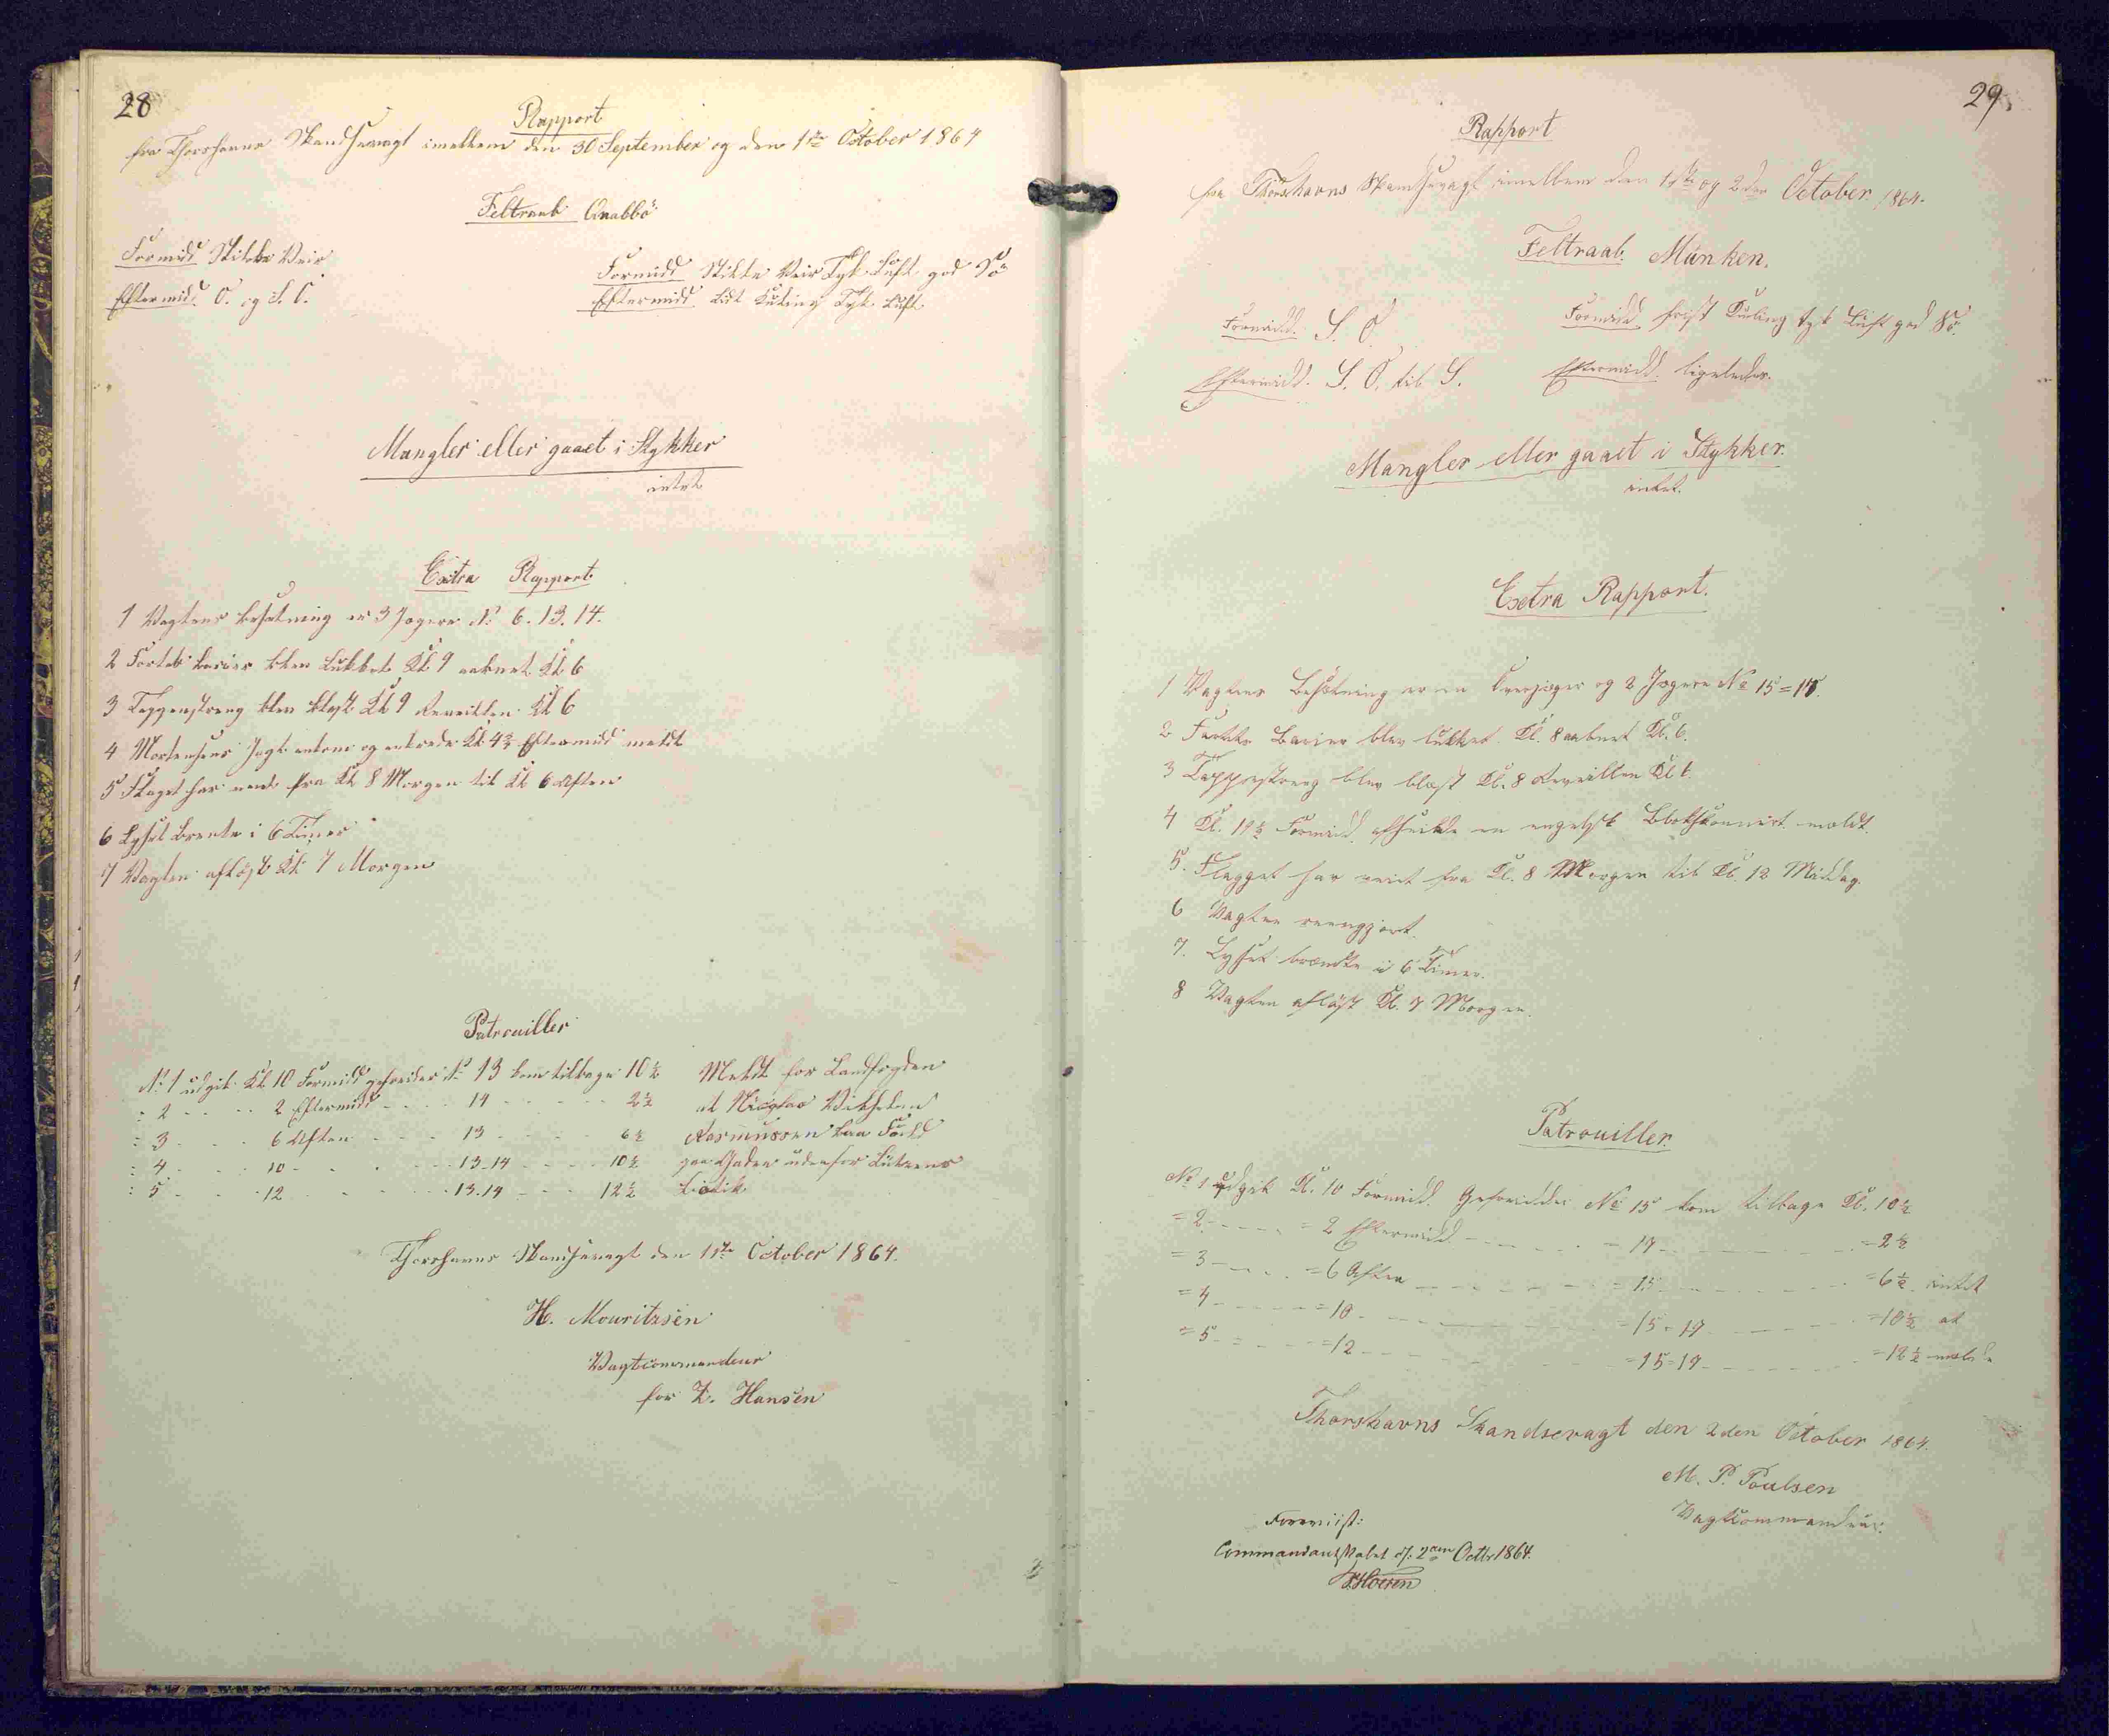 28
Rapport
fra Thorshavns Skandsevagt imellem den 30 September og den 1ste October 1864
Feltraab Quabbö
Formidd Stille Veir
Eftermidd. O. og S. O.
Formidd Stille Veir Tyk Luft god Sö
Eftermidd Lidt Kuling Tyk Luft
Mangler eller gaaet i Stykker
intet
Extra Rapport
1 Vagtens besætning er 3 Jægere No 6. 13. 14.
2 Fortets barier blev Lukket Kl 9 aabnet Kl 6
3 Tappenstreg blev blæst Kl 9 Reveillen Kl 6
4 Mortensens Jagt ankom og ankrede Kl 4½ Eftermidd meldt
5 Flaget har vendt fra Kl 8 Morgen til Kl 6 Aften
6 Lyset Brente i 6 Timer
7 Vagten aflöst Kl 7 Morgen
Patrouiller
No 1 udgik Kl 10 Formidd gefreider No 13 kom tilbage 10½ Meldt for Landfogden
: 2 - - - - 2 Eftermidd - - - - 14 - - - - - 2½ at Nicolas
: 3 - - - 6 Aften - - - - 13 - - - - - 6½ Rasmussen laa Fuld
: 4 - - - 10 - - - - 13-14 - - - - 10½ paa Gaden udenfor Lützens
: 5 - - - 12 - - - - 13.14 - - - 12½ Butik
Thorshavns Skandsevagt den 1ste October 1864.
H. Mouritzsen
Vagtcommandeur
for Z. Hansen
29.
Rapport
fra Thorshavns Skandsevagt imellem den 1ste og 2den October 1864.
Feltraab. Munken.
Formidd. S. O.
Eftermidd. S. O. til S.
Formidd. frisk Kuling tyk Luft god Sö.
Eftermidd. ligeledes.
Mangler eller gaaet i Stykker.
intet.
Exetra Rapport.
1 Vagtens Besætning er en Overjæger og 2 Jægere No 15 = 17.
2 Fortets Barier blev lukket Kl. 8 aabnet Kl. 6.
3 Tappestreg blev blæst Kl. 8 Reveillen Kl 6.
4 Kl. 11½ Formidd. afseilede en engelsk meldt.
5. Flagget har veiet fra Kl. 8 Morgen til Kl. 12 Middag.
6 Vagten reengjort.
7. Lyset brændte i 6 Timer.
8 Vagten aflöst Kl. 7 Morgen.
Patrouiller.
No 1 udgik Kl. 10 Formidd. Gefreider No 15 kom tilbage Kl. 10½
= 2 - - - - = 2 Eftermidd - - - - - 17 - - - - - = 2½
= 3 - - - - = 6 Aften - - - - - = 15 - - - - - = 6½ intet
= 4 - - - - = 10 - - - - - = 15 = 17 - - - - - = 10½ at
= 5 - - - - = 12 - - - - - = 15 = 17 - - - - - = 12½ melde
Thorshavns Skandsevagt den 2den October 1864.
M. P. Poulsen
Vagtkommandeur.
Foreviist:
Commandantskabet d. 2den Octbr 1864.